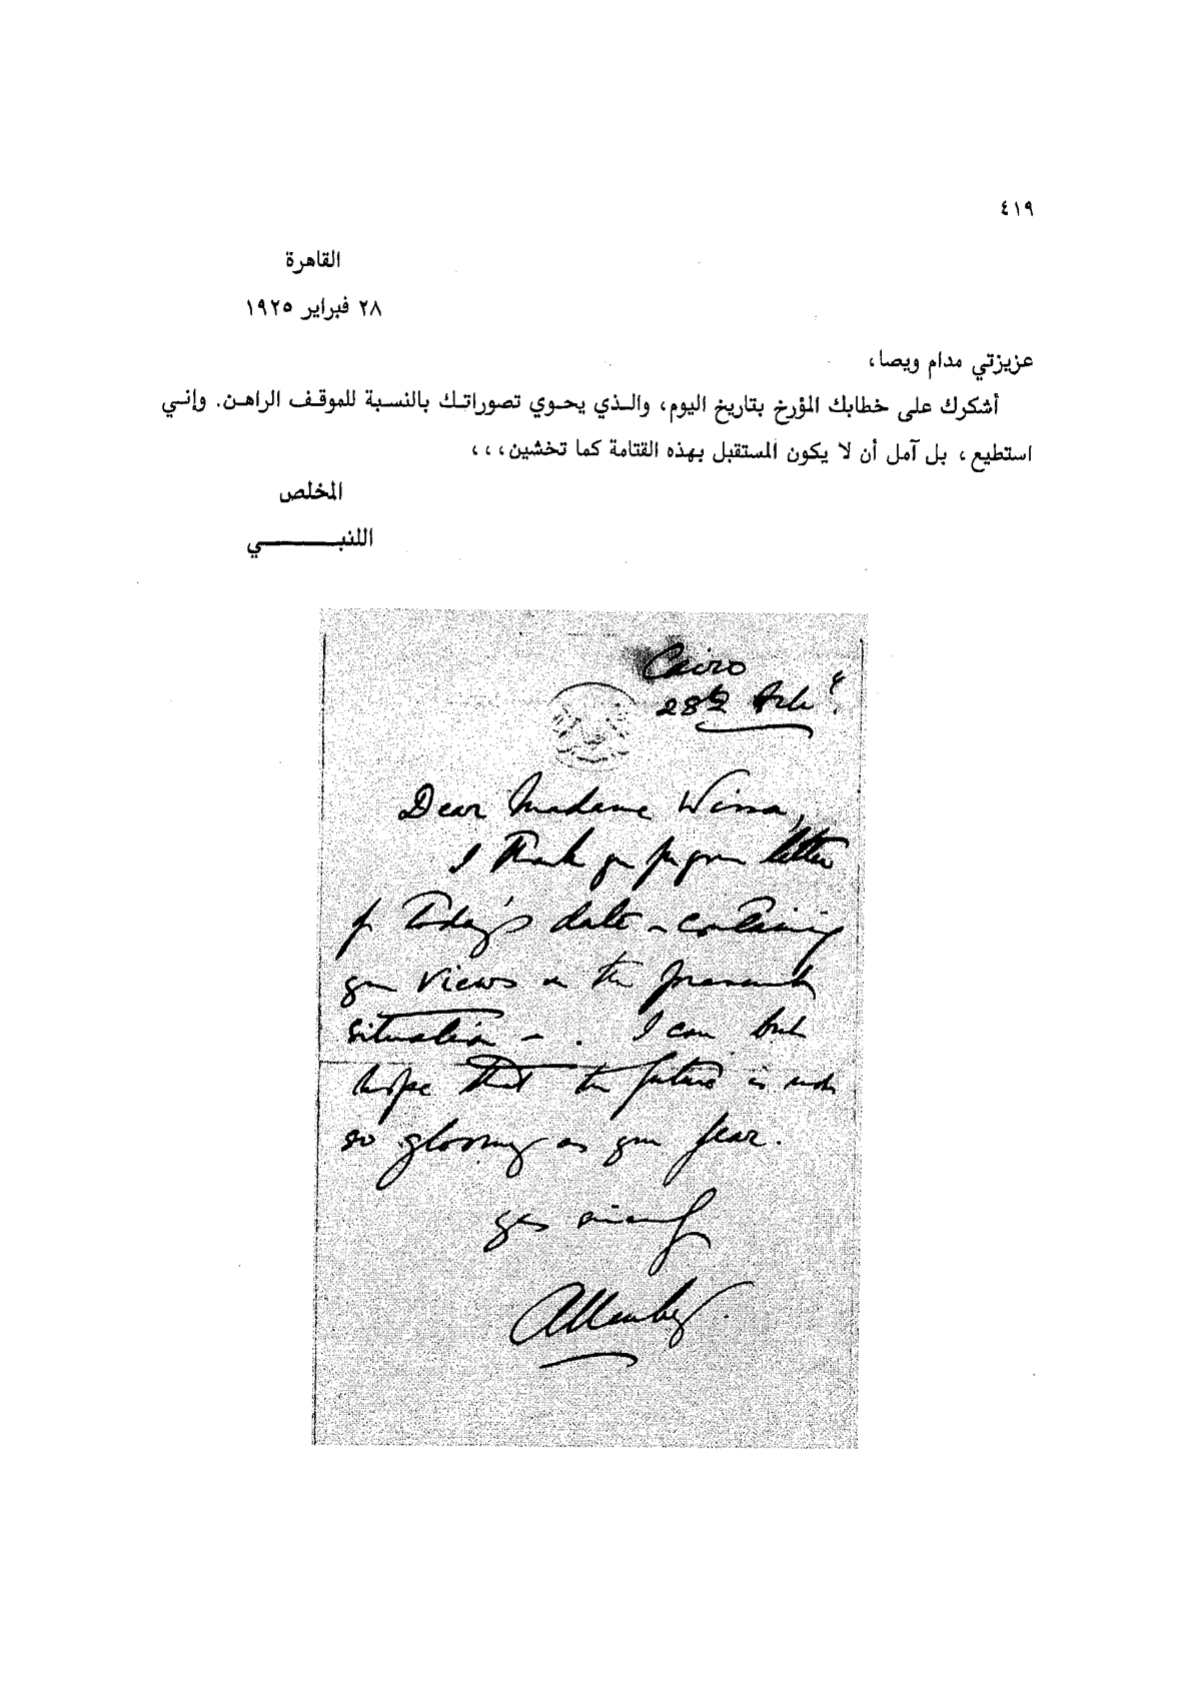 ٤١٩
القاهرة
٢٨ فبراير ١٩٢٥
عزيزتي مدام ويصا،
أشكرك على خطابك المؤرخ بتاريخ اليوم، والذي يحوي تصوراتك بالنسبة للموقف الراهن. وإني
استطيع، بل آمل أن لا يكون المستقبل بهذه القتامة كما تخشين،،،
المخلص
اللنبـــــــي
Cairo
28th Feb
Dear Madame Wissa,
I thank you for your letter
of today's date - containing
your views on the present
situation - . I can but
hope that the future is not
so gloomy as you fear.
yrs sincerely
Allenby.